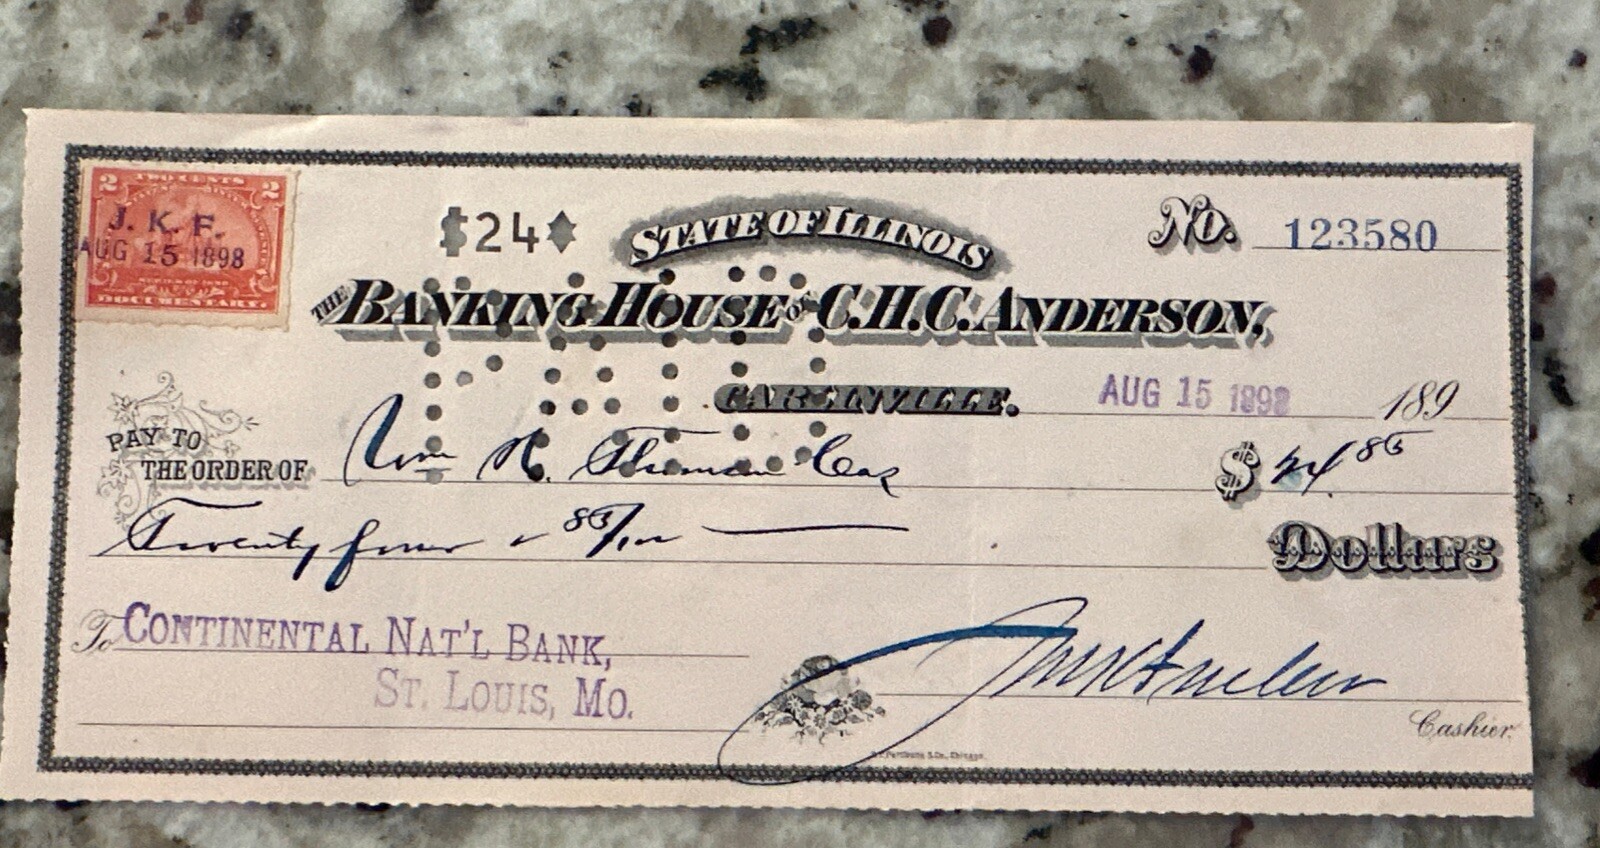 2 TWO CENTS 2
J. K. F.
AUG 15 1898
DOCUMENTARY.
$24
STATE OF ILLINOIS
No. 123580
THE BANKING HOUSE OF C.H.C. ANDERSON,
CARLINVILLE. AUG 15 1898 189
PAY TO
THE ORDER OF Wm H.
$ 24 85
Twenty four 85/100
Dollars
To CONTINENTAL NAT'L BANK,
ST. LOUIS, MO.
Cashier.